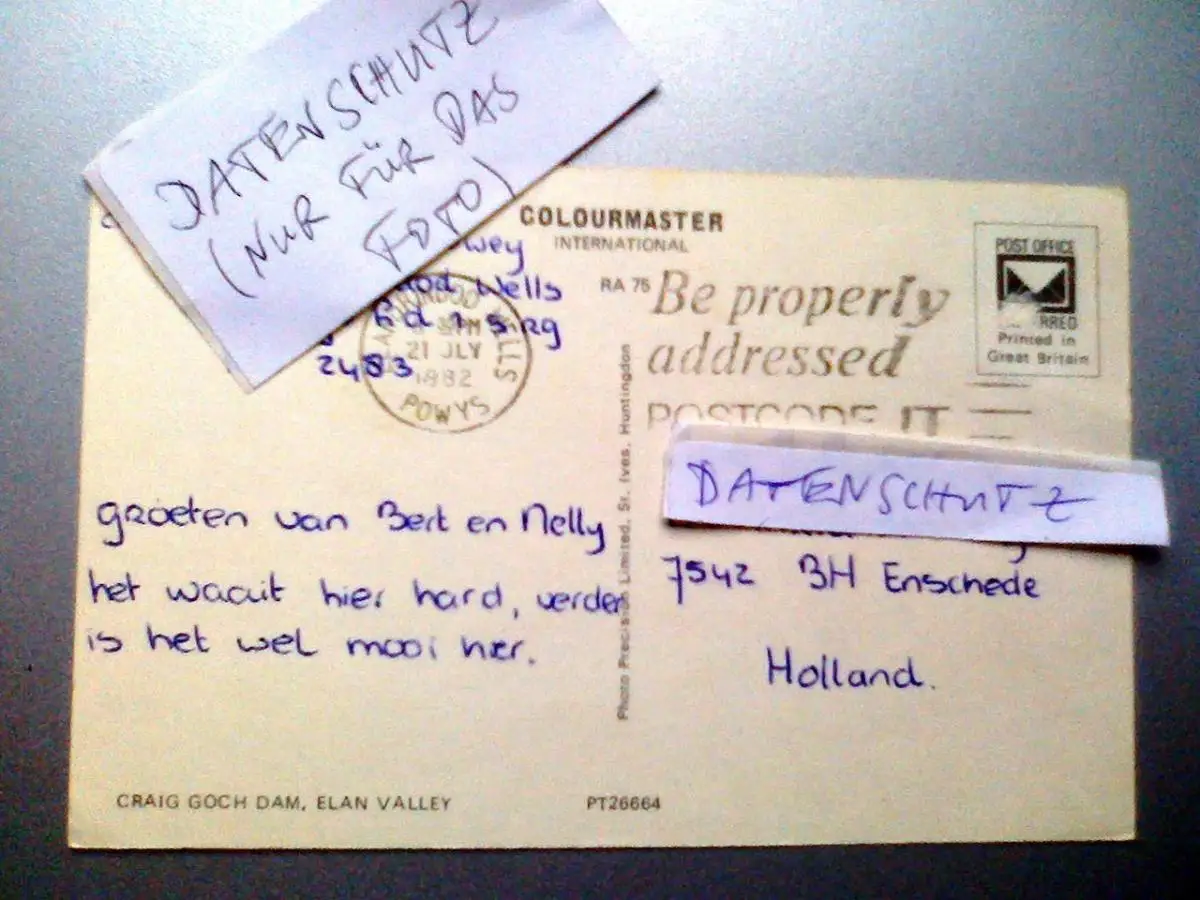 DATENSCHUTZ
(NUR FÜR DAS
FOTO)
COLOURMASTER
INTERNATIONAL
wey
Wells
2483
PM
21 JLY
1982
POWYS
RA 75
Be properly
addressed
POSTCODE IT
POST OFFICE
Printed in
Great Britain
Photo Precision Limited, St. Ives, Huntingdon
groeten van Bert en Nelly
het waait hier hard, verder
is het wel mooi hier.
DATENSCHUTZ
7542 BH Enschede
Holland.
CRAIG GOCH DAM, ELAN VALLEY
PT26664